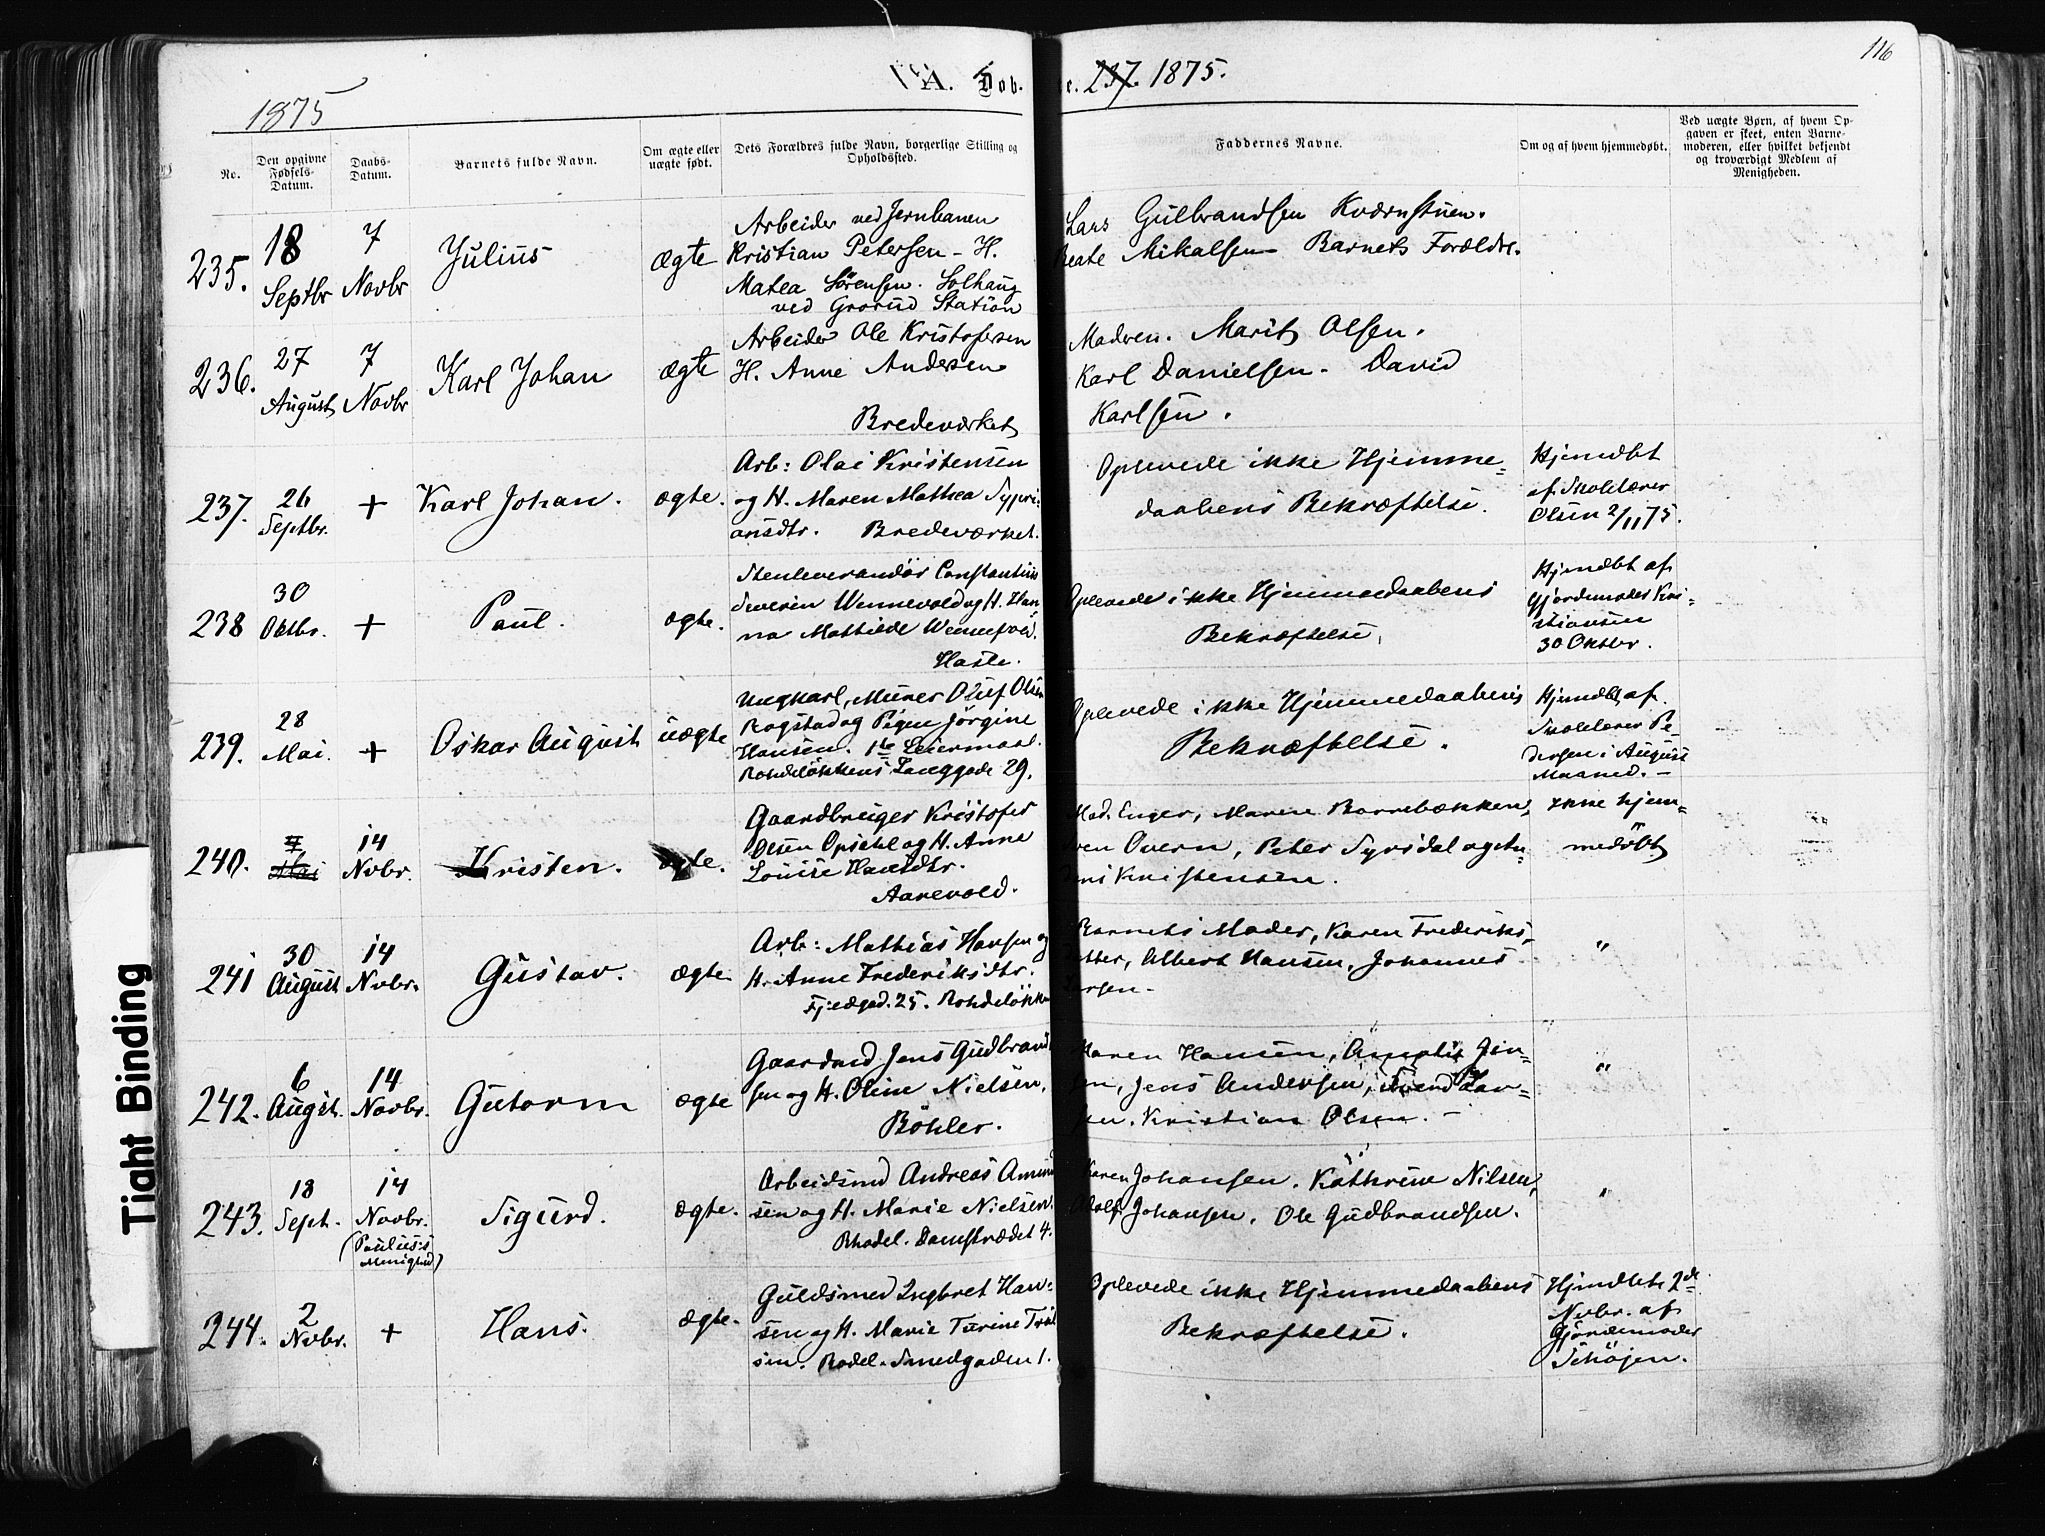 116
1875
A. Døb. 237. 1875.
No.
Den opgivne Fødsels-Datum.
Daabs-Datum.
Barnets fulde Navn.
Om ægte eller uægte født.
Dets Forældres fulde Navn, borgerlige Stilling og Opholdssted.
Faddernes Navne.
Om og af hvem hjemmedøbt.
Ved uægte Børn, af hvem Opgaven er skeet, enten Barnemoderen, eller hvilket bekjendt og troværdigt Medlem af Menigheden.
235. 18 Septbr 7 Novbr Julius ægte
Arbeider ved Jernbanen
Kristian Petersen - H.
Matea Sørensen. Solhaug
ved Grorud Station
Lars Gulbrandsen Kværnstuen.
Beate Mikalsen Barnets Forældre.
236. 27 August 7 Novbr Karl Johan ægte
Arbeider Ole Kristofersen
H. Anne Andersen
Bredeværket
Madren. Marit Olsen.
Karl Danielsen. David
Karlsen.
237. 26 Septbr. + Karl Johan. ægte.
Arb: Olai Kristensen
og H. Maren Mathea Sypri=
ansdtr. Bredeværket.
Oplevede ikke Hjemme=
daabens Bekræftelse.
Hjemdbt
af Skolelærer
Olsen 2/11 75.
238 30 Oktbr. + Paul. ægte.
Stenleverandør Constantius
Severin Wennevold og H. Han
na Mathilde Wennevold.
Hasle.
Oplevede ikke Hjemmedaabens
Bekræftelse.
Hjemdbt af
Gjordemoder Kri-
stiansen
30 Oktbr.
239. 28 Mai. + Oskar August uægte
Ungkarl, Murer Oluf Olsen
Rogstad og Pigen Jörgine
Hansen. 1ste Leiermaal.
Rohdeløkkens Langgade 29.
Oplevede ikke Hjemmedaabens
Bekræftelse.
Hjemdbt af
Skolelærer Pe-
dersen i August
Maaned. -
240. 7 Mai 14 Nvbr. Kristen. ægte.
Gaardbruger Kristofer
Olsen Opsahl og H. Anne
Louise Hansdtr.
Aarevold.
Mad. Enger, Maren Borrebækken,
Even Overn, Peter Syrsdal og
Kristensen.
Ikke hjem=
medöbt
241 30 August 14 Nvbr. Gustav. ægte
Arb: Mathias Hansen og
H. Anne Frederiksdtr.
Fjeldgad. 25. Rohdeløkken
Barnets Moder, Karen Frederiks-
datter, Albert Hansen, Johannes
Larsen -
"
242. 6 Augst. 14 Novbr. Gutorm ægte
Gaardmd Jens Gudbrand
sen og H. Oline Nielsen.
Böhler.
Maren Hansen, Jen=
sen, Jens Andersen, Svend Lar=
sen. Kristian Olsen. -
"
243. 18 Sept. 14 Novbr. (Paulus's Menighed) Sigurd. ægte.
Arbeidsmd Andreas Amund
sen og H. Marie Nielsen.
Rhodel. Damstrædet 4.
Karen Johansen. Kathrine Nilsen,
Adolf Johansen. Ole Gudbrandsen.
"
244. 2 Nvbr. + Hans. ægte.
Guldsmed Ingbret Han-
sen og H. Marie Turine
sen. Rodel. Smedgaden 1.
Oplevede ikke Hjemmedaabens
Bekræftelse.
Hjmdbt 2de
Nvbr. af
Gjordemoder
Schøjen.
Tight Binding